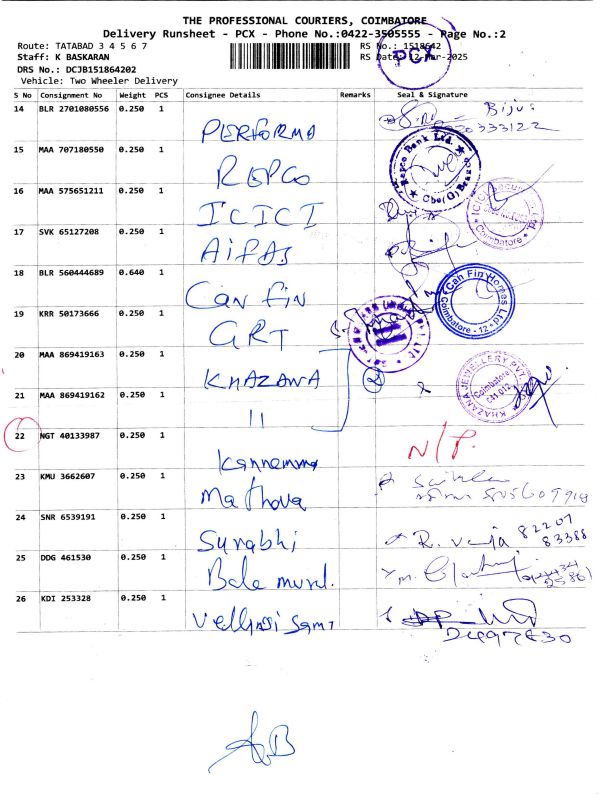 THE PROFESSIONAL COURIERS, COIMBATORE
Delivery Runsheet - PCX - Phone No.:0422-3505555 - Page No.:2
Route: TATABAD 3 4 5 6 7
RS No.: 1518642
Staff: K BASKARAN
RS Date: 12-Mar-2025
DRS No.: DCJB151864202
Vehicle: Two Wheeler Delivery
PCX
S No Consignment No Weight PCS Consignee Details Remarks Seal & Signature
14 BLR 2701080556 0.250 1 PERFORMA Biju
15 MAA 707180550 0.250 1 REPCO Repco Bank Ltd.
16 MAA 575651211 0.250 1 ICICI Coimbatore
17 SVK 65127208 0.250 1
18 BLR 560444689 0.640 1 Can Fin Can Fin Homes Ltd Coimbatore - 12
19 KRR 50173666 0.250 1 GRT
20 MAA 869419163 0.250 1 KHAZANA 2 KHAZANA JEWELLERY PVT. Coimbatore
21 MAA 869419162 0.250 1 11
22 NGT 40133987 0.250 1 Kannamma N/P.
23 KMU 3662607 0.250 1 Mathova
24 SNR 6539191 0.250 1 Surabhi R. 82207 83388
25 DDG 461530 0.250 1 Bala
26 KDI 253328 0.250 1